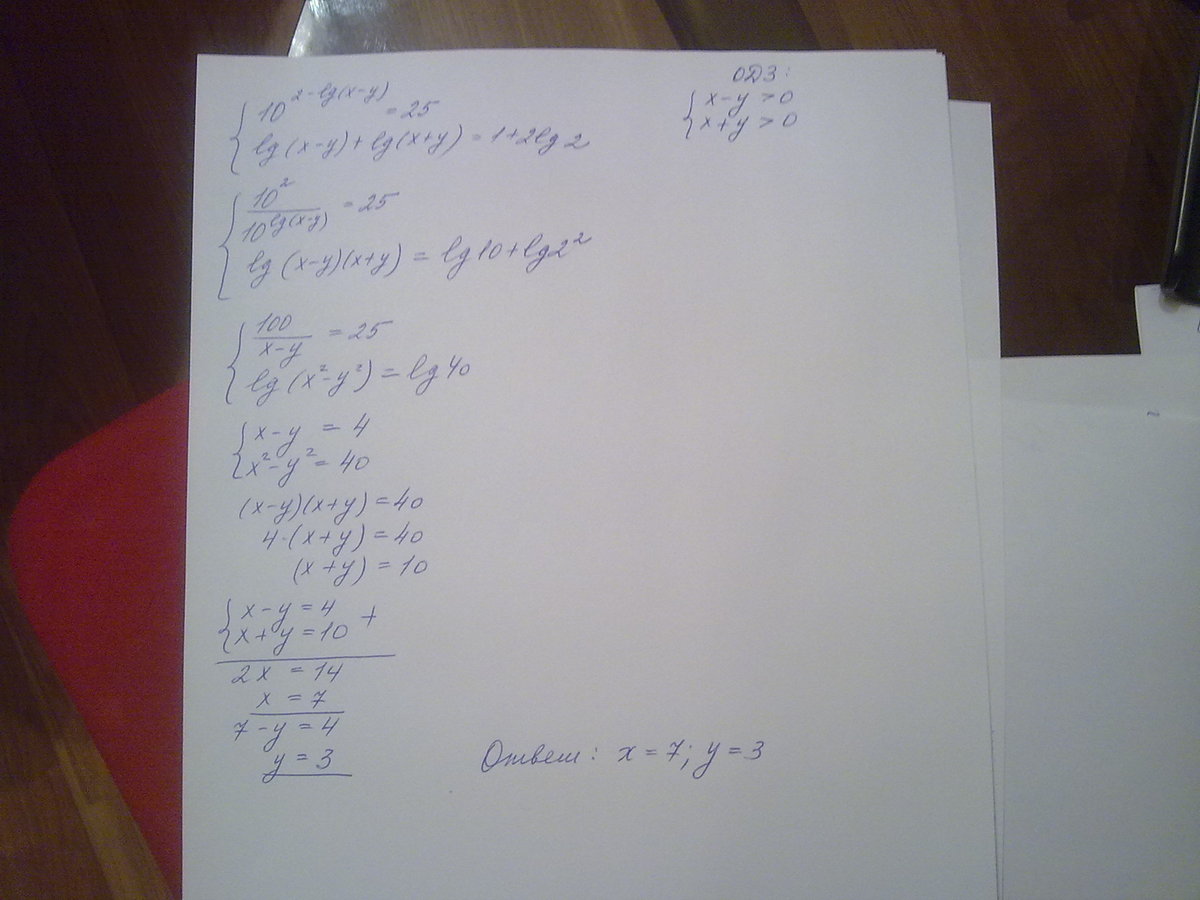 ОДЗ:
{ x-y > 0
{ x+y > 0
{ 10^(2-lg(x-y)) = 25
{ lg(x-y)+lg(x+y) = 1+2lg2
{ 10²/10^(lg(x-y)) = 25
{ lg(x-y)(x+y) = lg10+lg2²
{ 100/(x-y) = 25
{ lg(x²-y²) = lg40
{ x-y = 4
{ x²-y² = 40
(x-y)(x+y) = 40
4·(x+y) = 40
(x+y) = 10
{ x-y = 4 +
{ x+y = 10
2x = 14
x = 7
7-y = 4
y = 3
Ответ: x=7; y=3